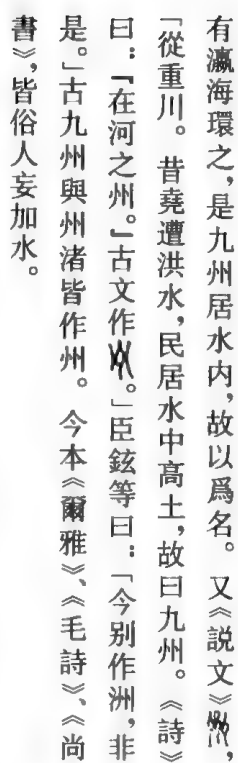 有瀛海環之，是九州居水内，故以爲名。又《説文》，
「從重川。昔堯遭洪水，民居水中高土，故曰九州。《詩》
曰：『在河之州。』古文作。」臣鉉等曰：「今别作洲，非
是。」古九州與州渚皆作州。今本《爾雅》、《毛詩》、《尚
書》，皆俗人妄加水。